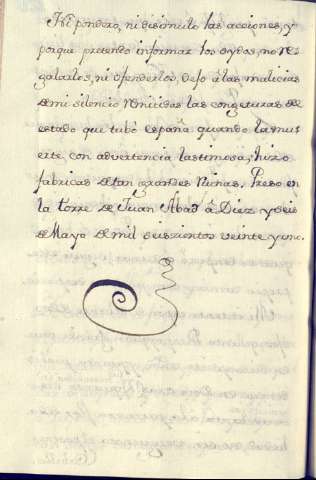 Ni pondero, ni disimulo las acciones, y
porque pretendo informar los oydos, no re
galarlos, ni ofenderlos, dejo à las malicias
de mi silencio remitidas las congeturas de
estado que tubò españa quando la mu
erte, con advertencia lastimosa, hizo
fabricas de tan grandes Ruinas. Preso en
la torre de Juan Abad à Diez y seis
de Mayo de mil seiscientos veinte y uno.